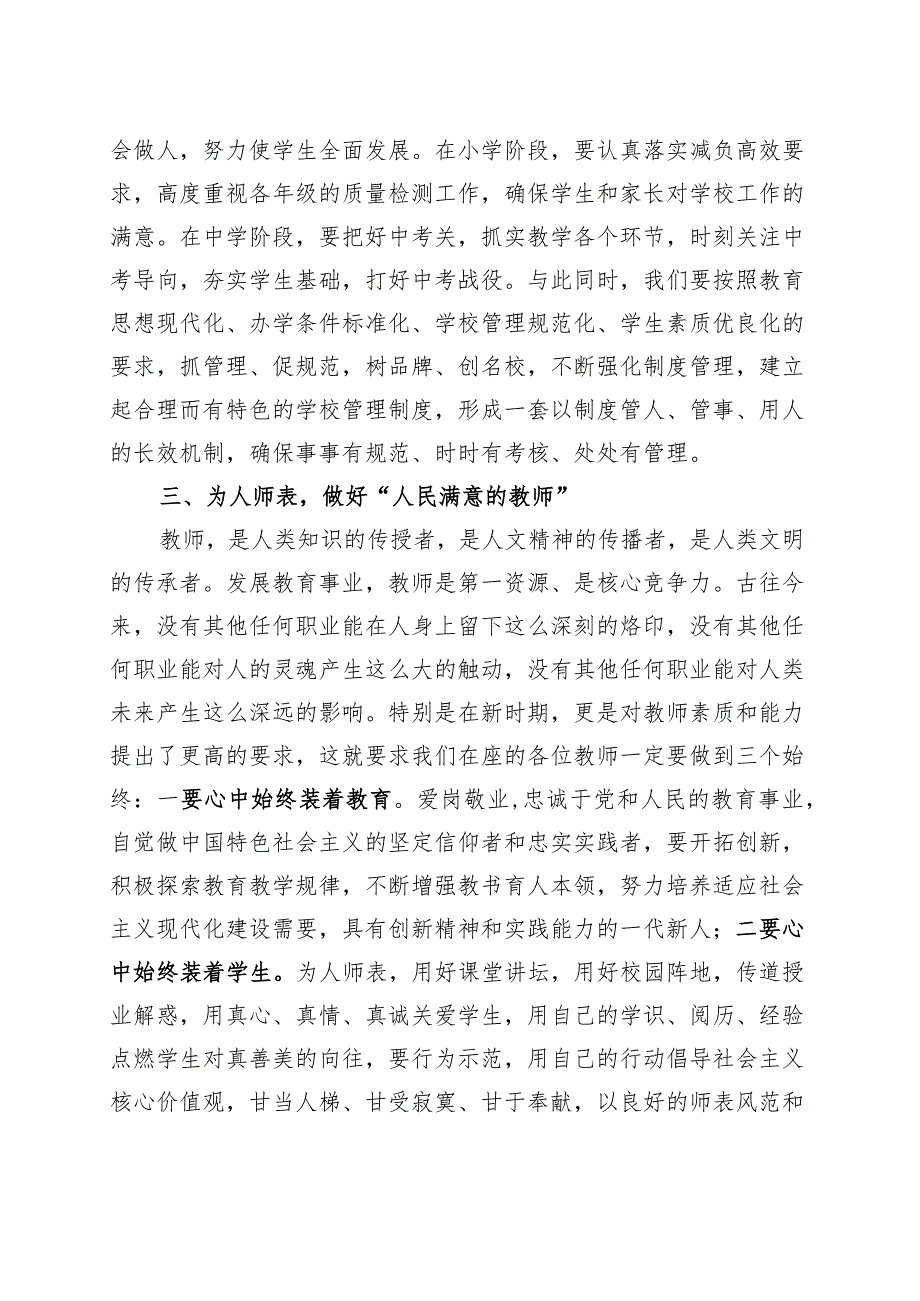 会做人，努力使学生全面发展。在小学阶段，要认真落实减负高效要
求，高度重视各年级的质量检测工作，确保学生和家长对学校工作的
满意。在中学阶段，要把好中考关，抓实教学各个环节，时刻关注中
考导向，夯实学生基础，打好中考战役。与此同时，我们要按照教育
思想现代化、办学条件标准化、学校管理规范化、学生素质优良化的
要求，抓管理、促规范，树品牌、创名校，不断强化制度管理，建立
起合理而有特色的学校管理制度，形成一套以制度管人、管事、用人
的长效机制，确保事事有规范、时时有考核、处处有管理。
三、为人师表，做好“人民满意的教师”
教师，是人类知识的传授者，是人文精神的传播者，是人类文明
的传承者。发展教育事业，教师是第一资源、是核心竞争力。古往今
来，没有其他任何职业能在人身上留下这么深刻的烙印，没有其他任
何职业能对人的灵魂产生这么大的触动，没有其他任何职业能对人类
未来产生这么深远的影响。特别是在新时期，更是对教师素质和能力
提出了更高的要求，这就要求我们在座的各位教师一定要做到三个始
终：一要心中始终装着教育。爱岗敬业,忠诚于党和人民的教育事业，
自觉做中国特色社会主义的坚定信仰者和忠实实践者，要开拓创新，
积极探索教育教学规律，不断增强教书育人本领，努力培养适应社会
主义现代化建设需要，具有创新精神和实践能力的一代新人；二要心
中始终装着学生。为人师表，用好课堂讲坛，用好校园阵地，传道授
业解惑，用真心、真情、真诚关爱学生，用自己的学识、阅历、经验
点燃学生对真善美的向往，要行为示范，用自己的行动倡导社会主义
核心价值观，甘当人梯、甘受寂寞、甘于奉献，以良好的师表风范和